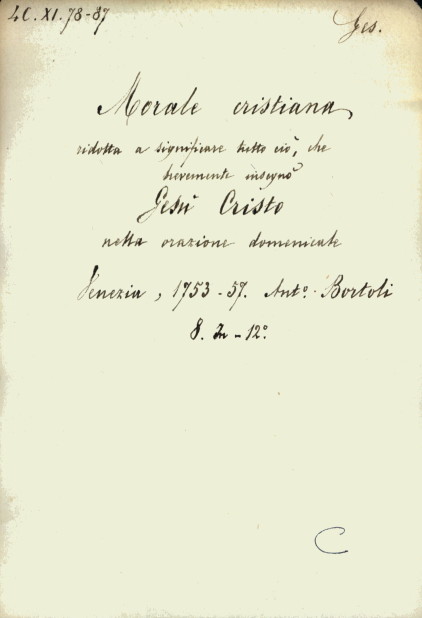 4C. XI. 78-87
Ges.
Morale cristiana
ridotta a significare tutto ciò, che
brevemente insegnò
Gesù Cristo
nella orazione domenicale
Venezia, 1753-57. Antº. Bortoli
8. In-12º.
C